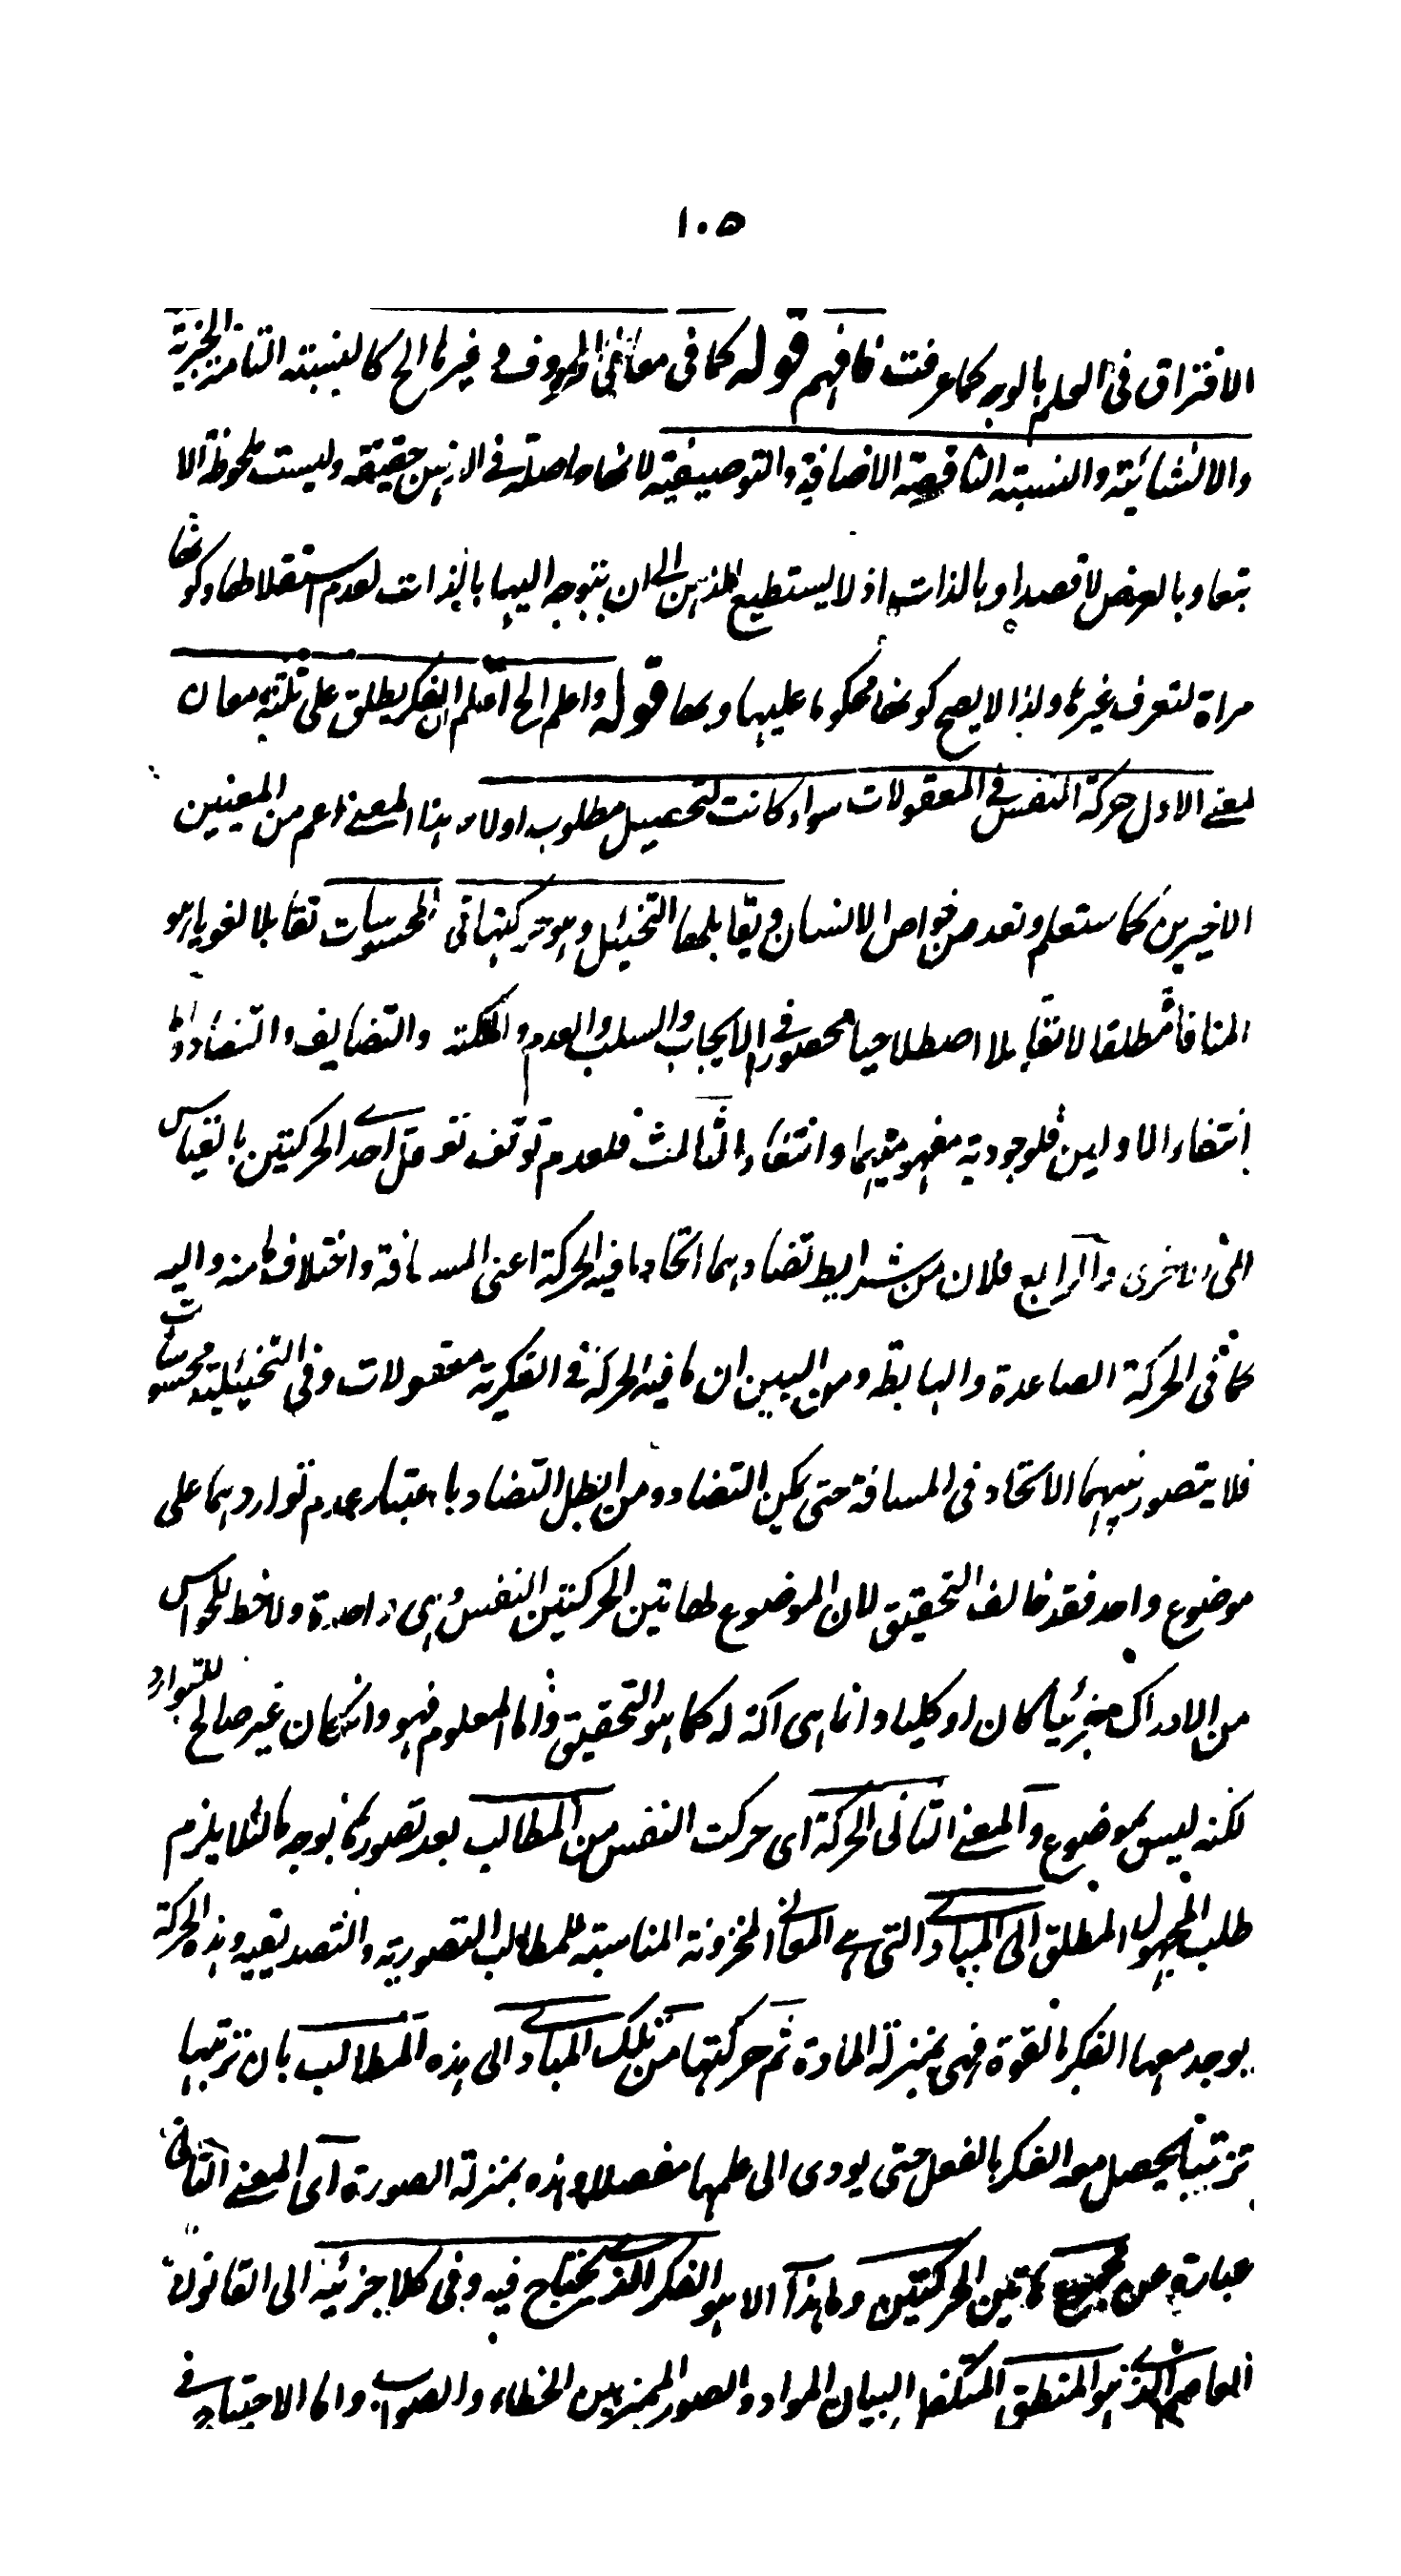 ١٠٥
الافتراق فى العلم بالوجه كما عرفت فافهم قوله كما فى معانى الحروف وغيرها الخ كالنسبته التامة الخبرية
والانشائية والنسبته الناقصة الاضافية والتوصيفية لانها حاصلة فى الاذهن حقيقة وليست ملحوظة الا
تبعا وبالعرض لا قصدا وبالذات اذ لا يستطيع الذهن الى ان يتوجه اليها بالذات لعدم استقلالها وكونها
مراة لتعرف غيرها ولهذا لا يصح كونها محكوما عليها وبها قوله واعلم الخ اعلم ان الفكر يطلق على ثلثة معان
لمعنے الاول حركة النفس فے المعقولات سواء كانت لتحصيل مطلوب اولا وهذا المعنے اعم من المعنيين
الاخيرين كما ستعلم وتعد من خواص الانسان ويقابلها التخئيل وهو حركتها فى المحسوسات تقابلا لغويا هو
المنافاة مطلقا لا تقابلا اصطلاحيا محصورا فے الايجاب والسلب والعدم والملكته والتضايف والتضاد اما
انتفاء الاولين فلوجودية مفهوميهما وانتفاء الثالث فلعدم توقف تعقل احدے الحركتين بالقياس
الى الاخرى والرابع فلان من شرايط تضادهما اتحاد ما فيه الحركة اعنى المسافة واختلاف ما منه واليه
كما فى الحركة الصاعدة والهابطة ومن البين ان ما فيه الحركة فے الفكرية معقولات وفى التخئيلية محسوسات
فلا يتصور فيهما الاتحاد فى المسافة حتى يمكن التضاد ومن ابطل التضاد باعتبار عدم تواردهما على
موضوع واحد فقد خالف التحقيق لان الموضوع لهاتين الحركتين النفس وهى واحدة ولا حظ للحواس
من الادراك جزئيا كان او كليا وانما هى آلة له كما هو التحقيق واما المعلوم فهو وان كان غير صالح للتوارد
لكنه ليس بموضوع والمعنے الثانى الحركة اى حركت النفس من المطالب بعد تصورها بوجه ما لئلا يلزم
طلب المجهول المطلق الى المبادے التى هے المعانى المخزونة المناسبته للمطالب التصورية والتصديقية وهذه الحركة
يوجد معها الفكر بالقوة فهى بمنزلة المادة ثم حركتها من تلك المبادے الى هذه المطالب بان ترتبها
ترتيبا يحصل معه الفكر بالفعل حتى يودى الى علمها مفصلا وهذه بمنزلة الصورة اى المعنے الثانى
عبارة عن مجموع هاتين الحركتين وهذا الا هو الفكر الذے يحتاج فيه وفى كلا جزئيه الى القانون
العاصم الذے هو المنطق المتكفل لبيان المواد والصور المميز بين الخطاء والصواب واما الاحتياج فے